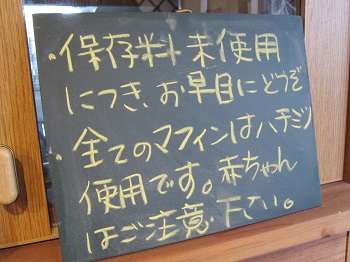 ・保存料未使用
につき、お早目にどうぞ
・全てのマフィンはハチミツ
使用です。赤ちゃん
はご注意下さい。